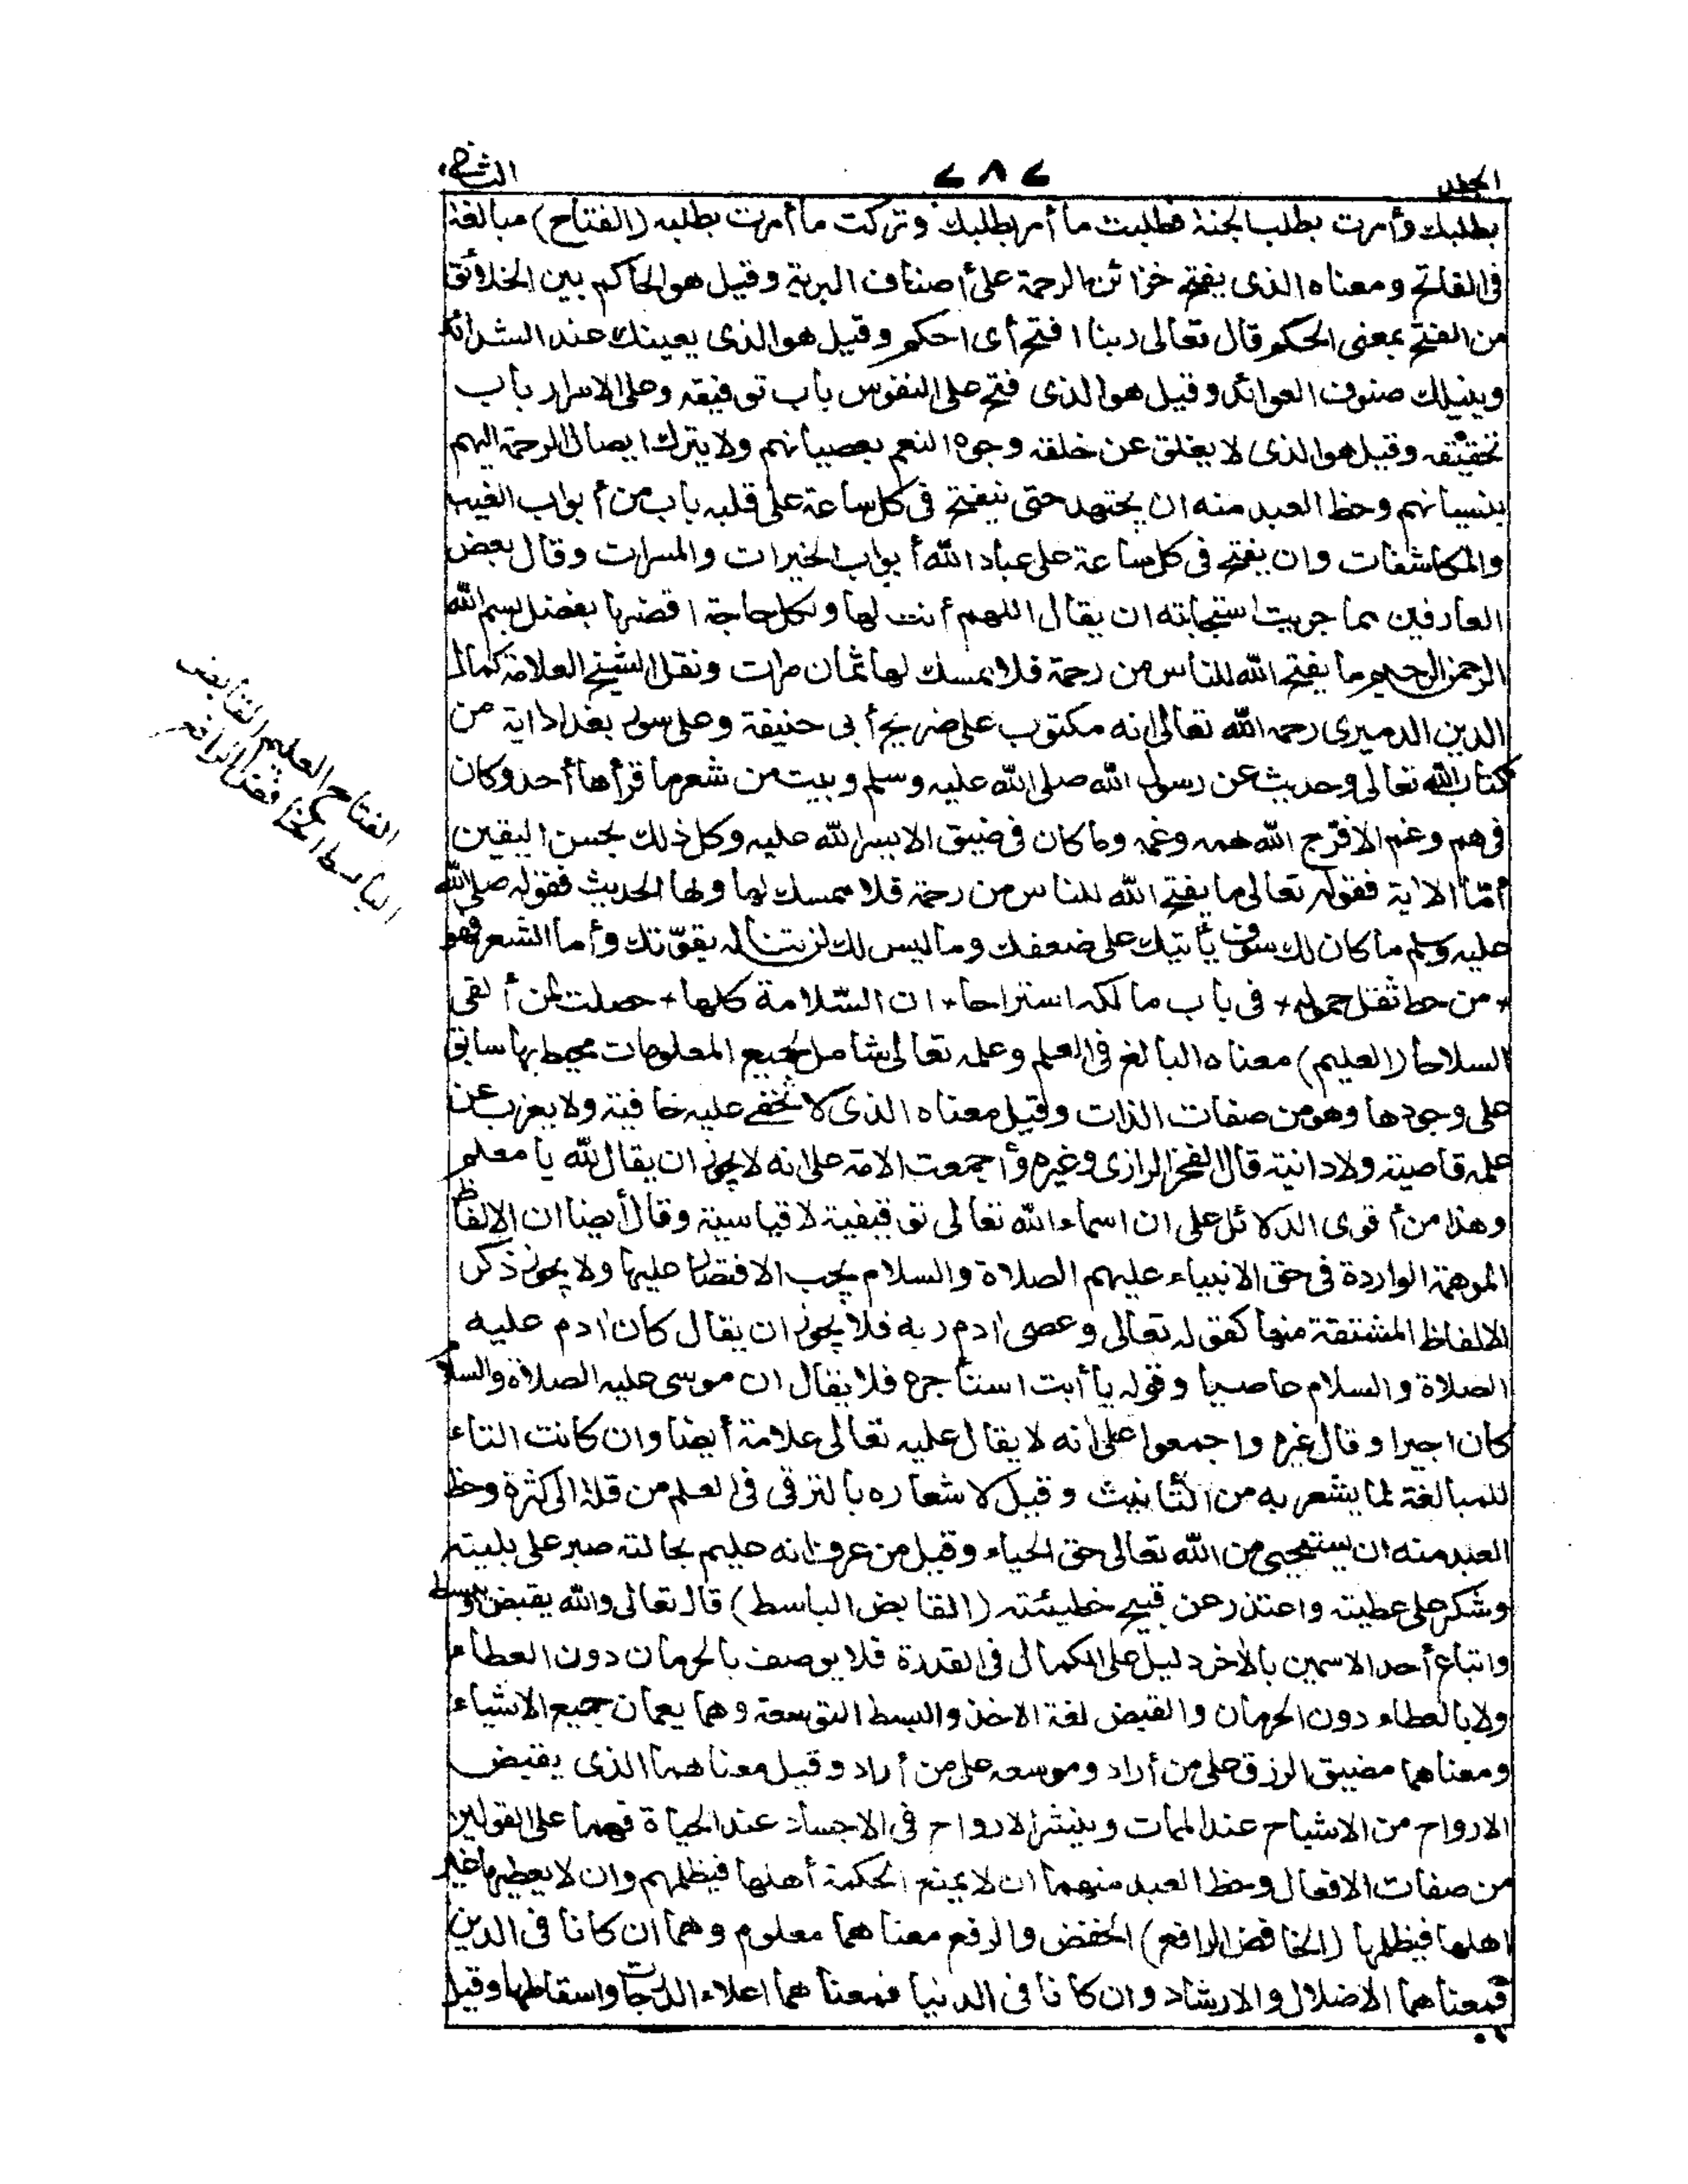 المجلد ٢٨٢ الثاني
بطلبك وأمرت بطلب الجنة فطلبت ما أمر بطلبك وتركت ما أمرت بطلبه (الفتاح) مبالغة
فى الفاتح ومعناه الذى يفتح خزائن الرحمة على أصناف البرية وقيل هو الحاكم بين الخلائق
من الفتح بمعنى الحكم قال تعالى ربنا افتح أى احكم وقيل هو الذى يعينك عند الشدائد
وينيلك صنوف العوائد وقيل هو الذى فتح على النفوس باب توفيقه وعلى الاسرار باب
تحقيقه وقيل هو الذى لا يغلق عن خلقه وجوه النعم بعصيانهم ولا يترك ايصال الرحمة اليهم
بنسيانهم وحظ العبد منه ان يجتهد حتى ينفتح فى كل ساعة على قلبه باب من أبواب الغيب
والمكاشفات وان يفتح فى كل ساعة على عباد الله أبواب الخيرات والمسرات وقال بعض
العارفين مما جربت استجابته ان يقال اللهم أنت لها ولكل حاجة اقضها بفضل بسم الله
الرحمن الرحيم ما يفتح الله للناس من رحمة فلا ممسك لها ثمان مرات ونقل الشيخ العلامة كمال
الدين الدميرى رحمه الله تعالى انه مكتوب على ضريح أبى حنيفة وعلى سور بغداد اية من
كتاب الله تعالى وحديث عن رسول الله صلى الله عليه وسلم وبيت من شعر ما قرأها أحد وكان
فى هم وغم الا فرّج الله همه وغمه وما كان فى ضيق الا يسر الله عليه وكل ذلك بحسن اليقين
أمّا الاية فقوله تعالى ما يفتح الله للناس من رحمة فلا ممسك لها ولها الحديث فقوله صلى الله
عليه وسلم ما كان لك سوف يأتيك على ضعفك وما ليس لك لن تناله بقوّتك وأما الشعر فهو
* من حط ثقل حموله * فى باب مالكه استراحا * ان السّلامة كلها * حصلت لمن ألقى
السلاحا (العليم) معناه البالغ فى العلم وعلمه تعالى شامل لجميع المعلومات محيط بها سابق
على وجودها وهو من صفات الذات وقيل معناه الذى لا تخفى عليه خافية ولا يعزب عن
علمه قاصية ولا دانية قال الفخر الرازى وغيره وأجمعت الامة على انه لا يجوز ان يقال لله يا معلم
وهذا من أقوى الدلائل على ان اسماء الله تعالى توقيفية لا قياسية وقال أيضا ان الالفاظ
الموهمة الواردة فى حق الانبياء عليهم الصلاة والسلام يجب الاقتصار عليها ولا يجوز ذكر
الالفاظ المشتقة منها كقوله تعالى وعصى ادم ربه فلا يجوز ان يقال كان ادم عليه
الصلاة والسلام عاصيا وقوله يا أبت استأجره فلا يقال ان موسى عليه الصلاة والسلام
كان اجيرا وقال غيره واجمعوا على أنه لا يقال عليه تعالى علامة أيضا وان كانت التاء
للمبالغة لما يشعر به من التأنيث وقيل لا شعاره بالترقى فى العلم من قلة الى كثرة وحظ
العبد منه ان يستحيى من الله تعالى حق الحياء وقيل من عرف انه عليم بحالته صبر على بليته
وشكر على عطيته واعتذر عن قبيح خطيئته (القابض الباسط) قال تعالى والله يقبض ويبسط
واتباع أحد الاسمين بالأخر دليل على الكمال فى القدرة فلا يوصف بالحرمان دون العطاء
ولا بالعطاء دون الحرمان والقبض لغة الاخذ والبسط التوسعة وهما يعمان جميع الاشياء
ومعناهما مضيق الرزق على من أراد وموسعه على من أراد وقيل معناهما الذى يقبض
الارواح من الاشباح عند الممات وينشر الارواح فى الاجساد عند الحياة فهما على القولين
من صفات الافعال وحظ العبد منهما ان لا يمنع الحكمة أهلها فيظلمهم وان لا يعطيها غير
اهلها فيظلمها (الخافض الرافع) الخفض والرفع معناهما معلوم وهما ان كانا فى الدين
فمعناهما الاضلال والارشاد وان كانا فى الدنيا فمعناهما اعلاء الدرجات واسقاطها وقيل
الفتاح العليم القابض
الباسط الخافض الرافع